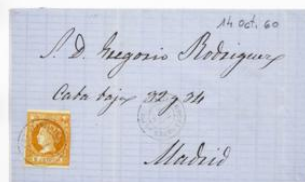 14 Oct. 60
S. D. Gregorio Rodriguez
Cava baja 32 y 34
Madrid